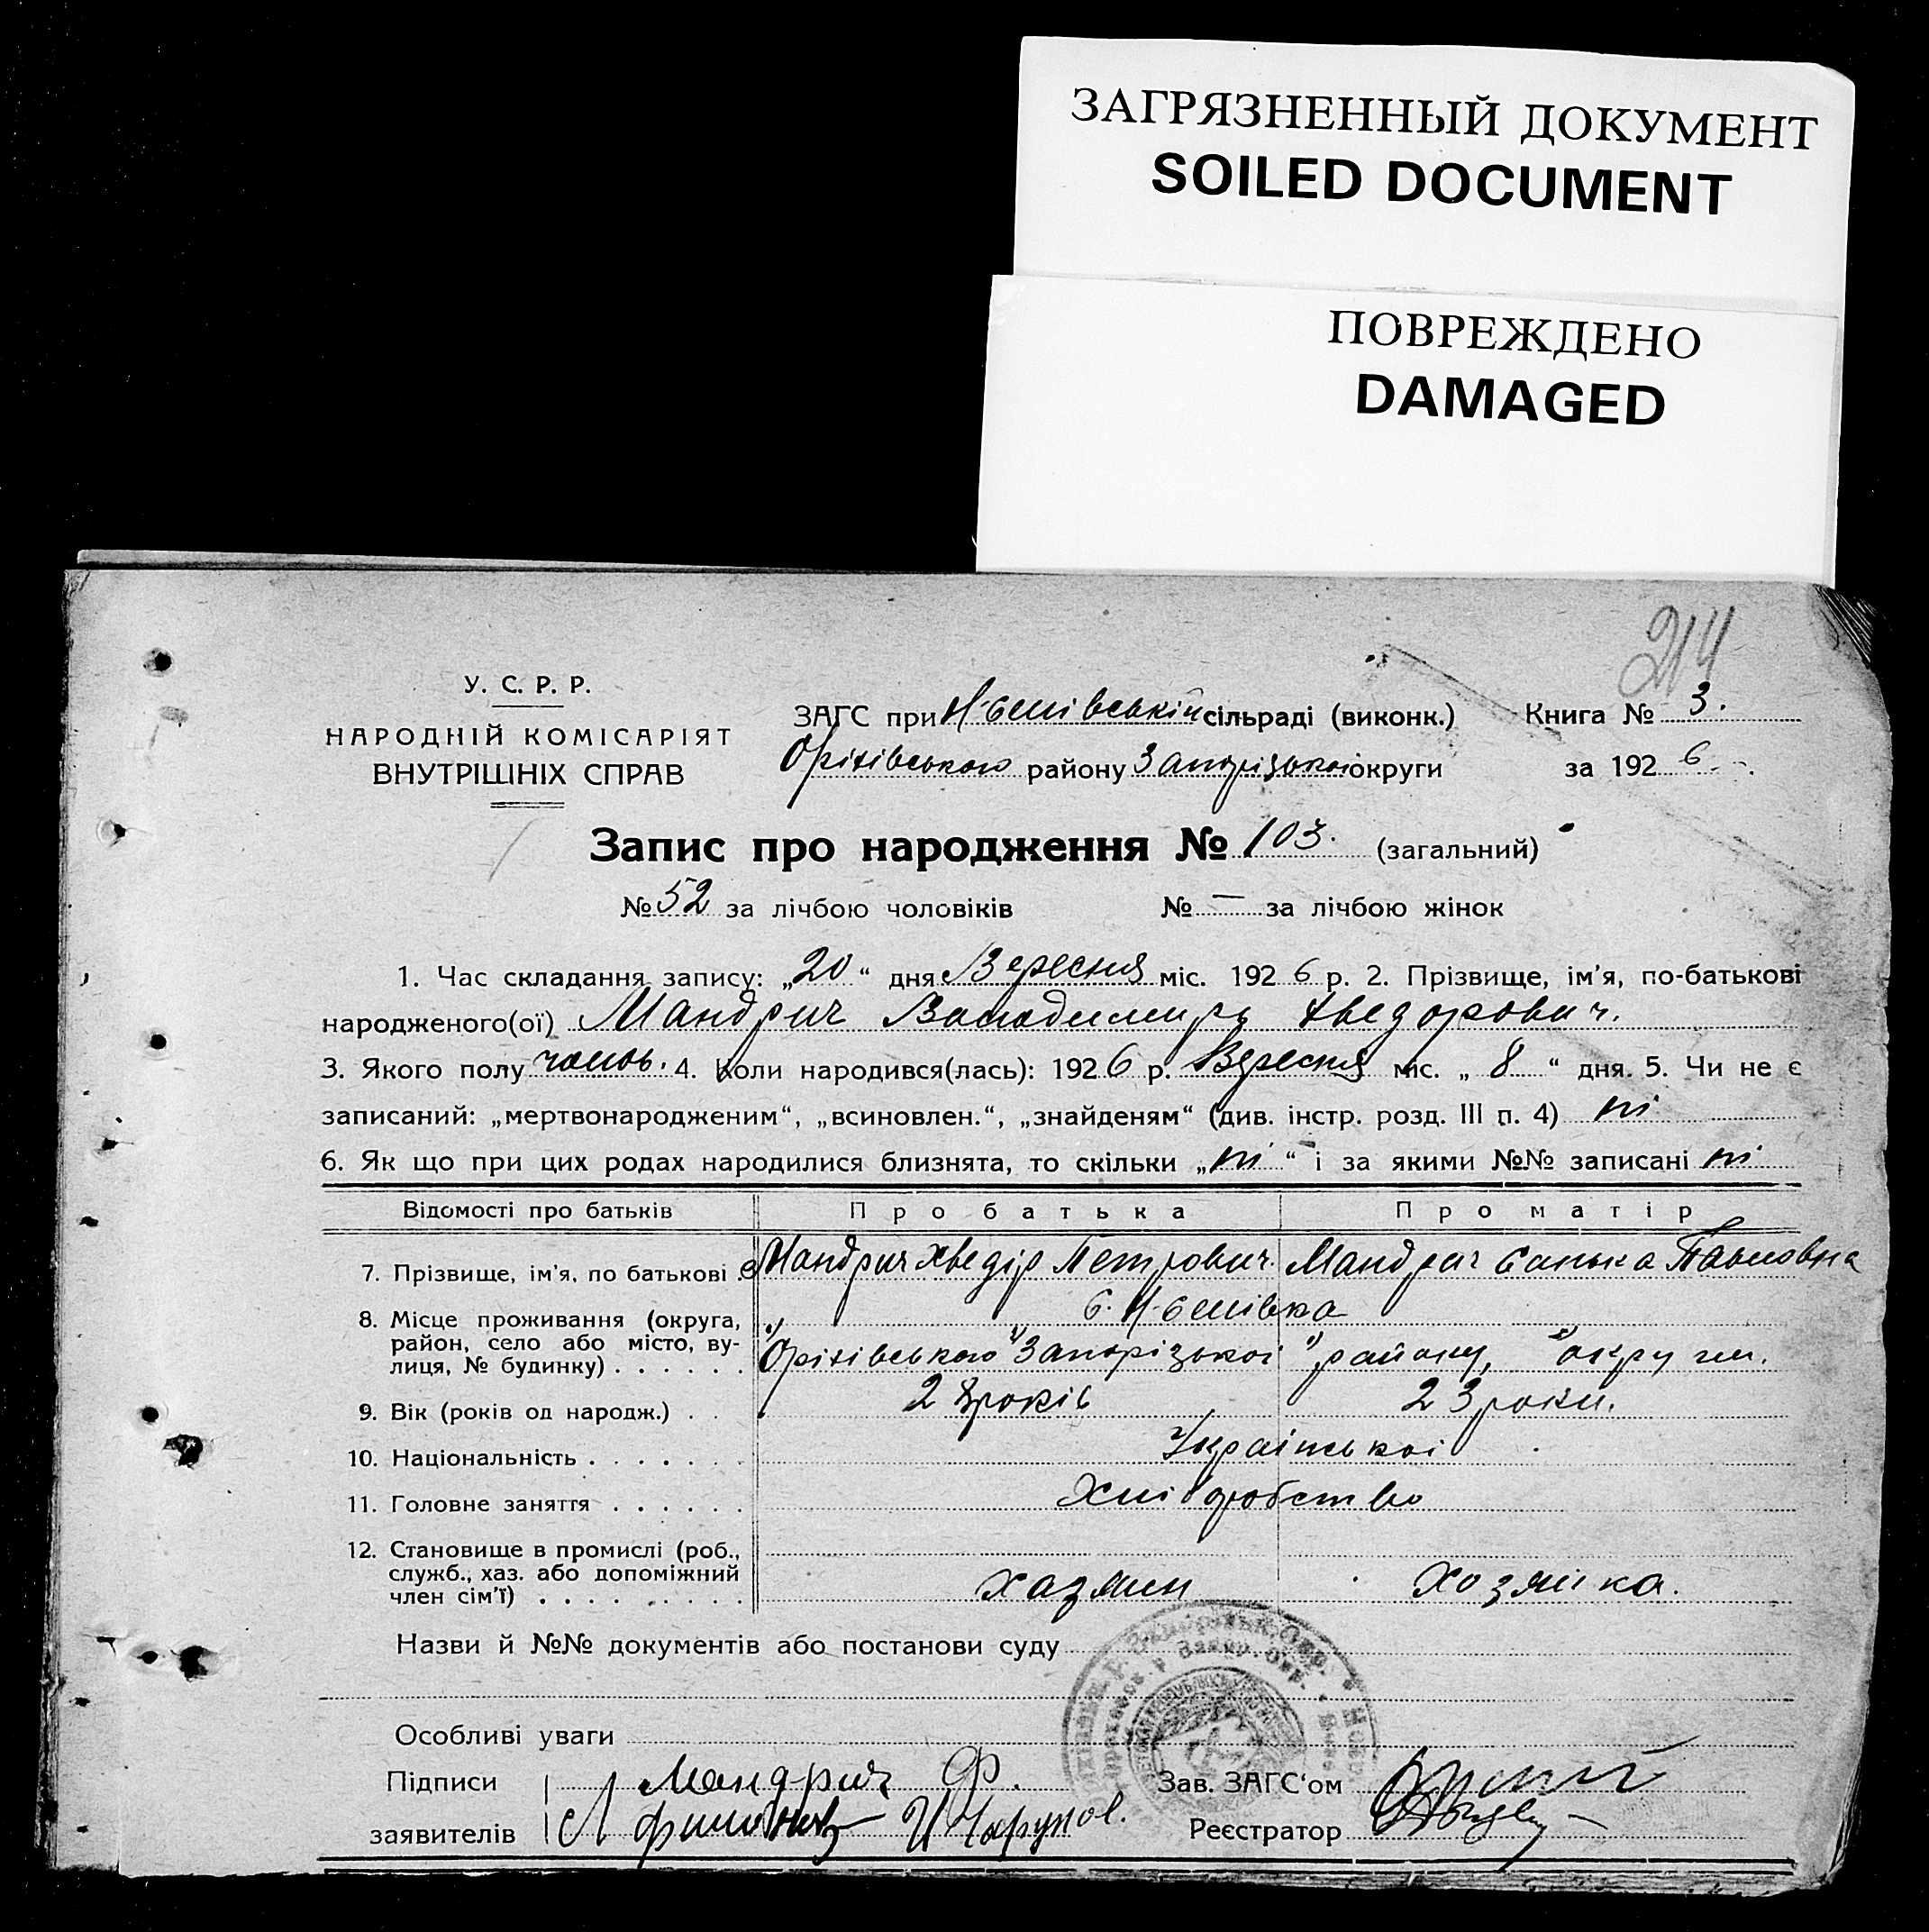 ЗАГРЯЗНЕННЫЙ ДОКУМЕНТ
SOILED DOCUMENT
ПОВРЕЖДЕНО
DAMAGED
214
У. С. Р. Р.
НАРОДНІЙ КОМІСАРІЯТ
ВНУТРІШНІХ СПРАВ
ЗАГС при сільраді (виконк.) Книга № 3.
Оріхівського району Запорізької округи за 1926
Запис про народження № 103. (загальний)
№ 52 за лічбою чоловіків № — за лічбою жінок
1. Час складання запису: „20“ дня Вересня міс. 1926 р. 2. Прізвище, ім'я, по-батькові
народженого(ої) Мандрич Хведорович.
3. Якого полу чолов. 4. Коли народився(лась): 1926 р. Вересня міс. „8“ дня. 5. Чи не є
записаний: „мертвонародженим“, „всиновлен.“, „знайденям“ (див. інстр. розд. III п. 4) ні
6. Як що при цих родах народилися близнята, то скільки „ні“ і за якими №№ записані ні
Відомості про батьків Про батька Про матір
7. Прізвище, ім'я, по батькові . Мандрич Хведір Петрович. Мандрич Санька Павловна
8. Місце проживання (округа,
район, село або місто, ву-
лиця, № будинку) . . . . . . „Оріхівського" Запорізької "району, "округи.
9. Вік (років од народж.) . . . 28 років 23 роки.
10. Національність . . . . . . . Української
11. Головне заняття . . . . . . Хліборобство
12. Становище в промислі (роб.,
служб., хаз. або допоміжний
член сім'ї) . . . . . . . . . хазяин хозяйка.
Назви й №№ документів або постанови суду
Особливі уваги
Підписи Мандрич Ф. Зав. ЗАГС'ом
заявителів Реєстратор